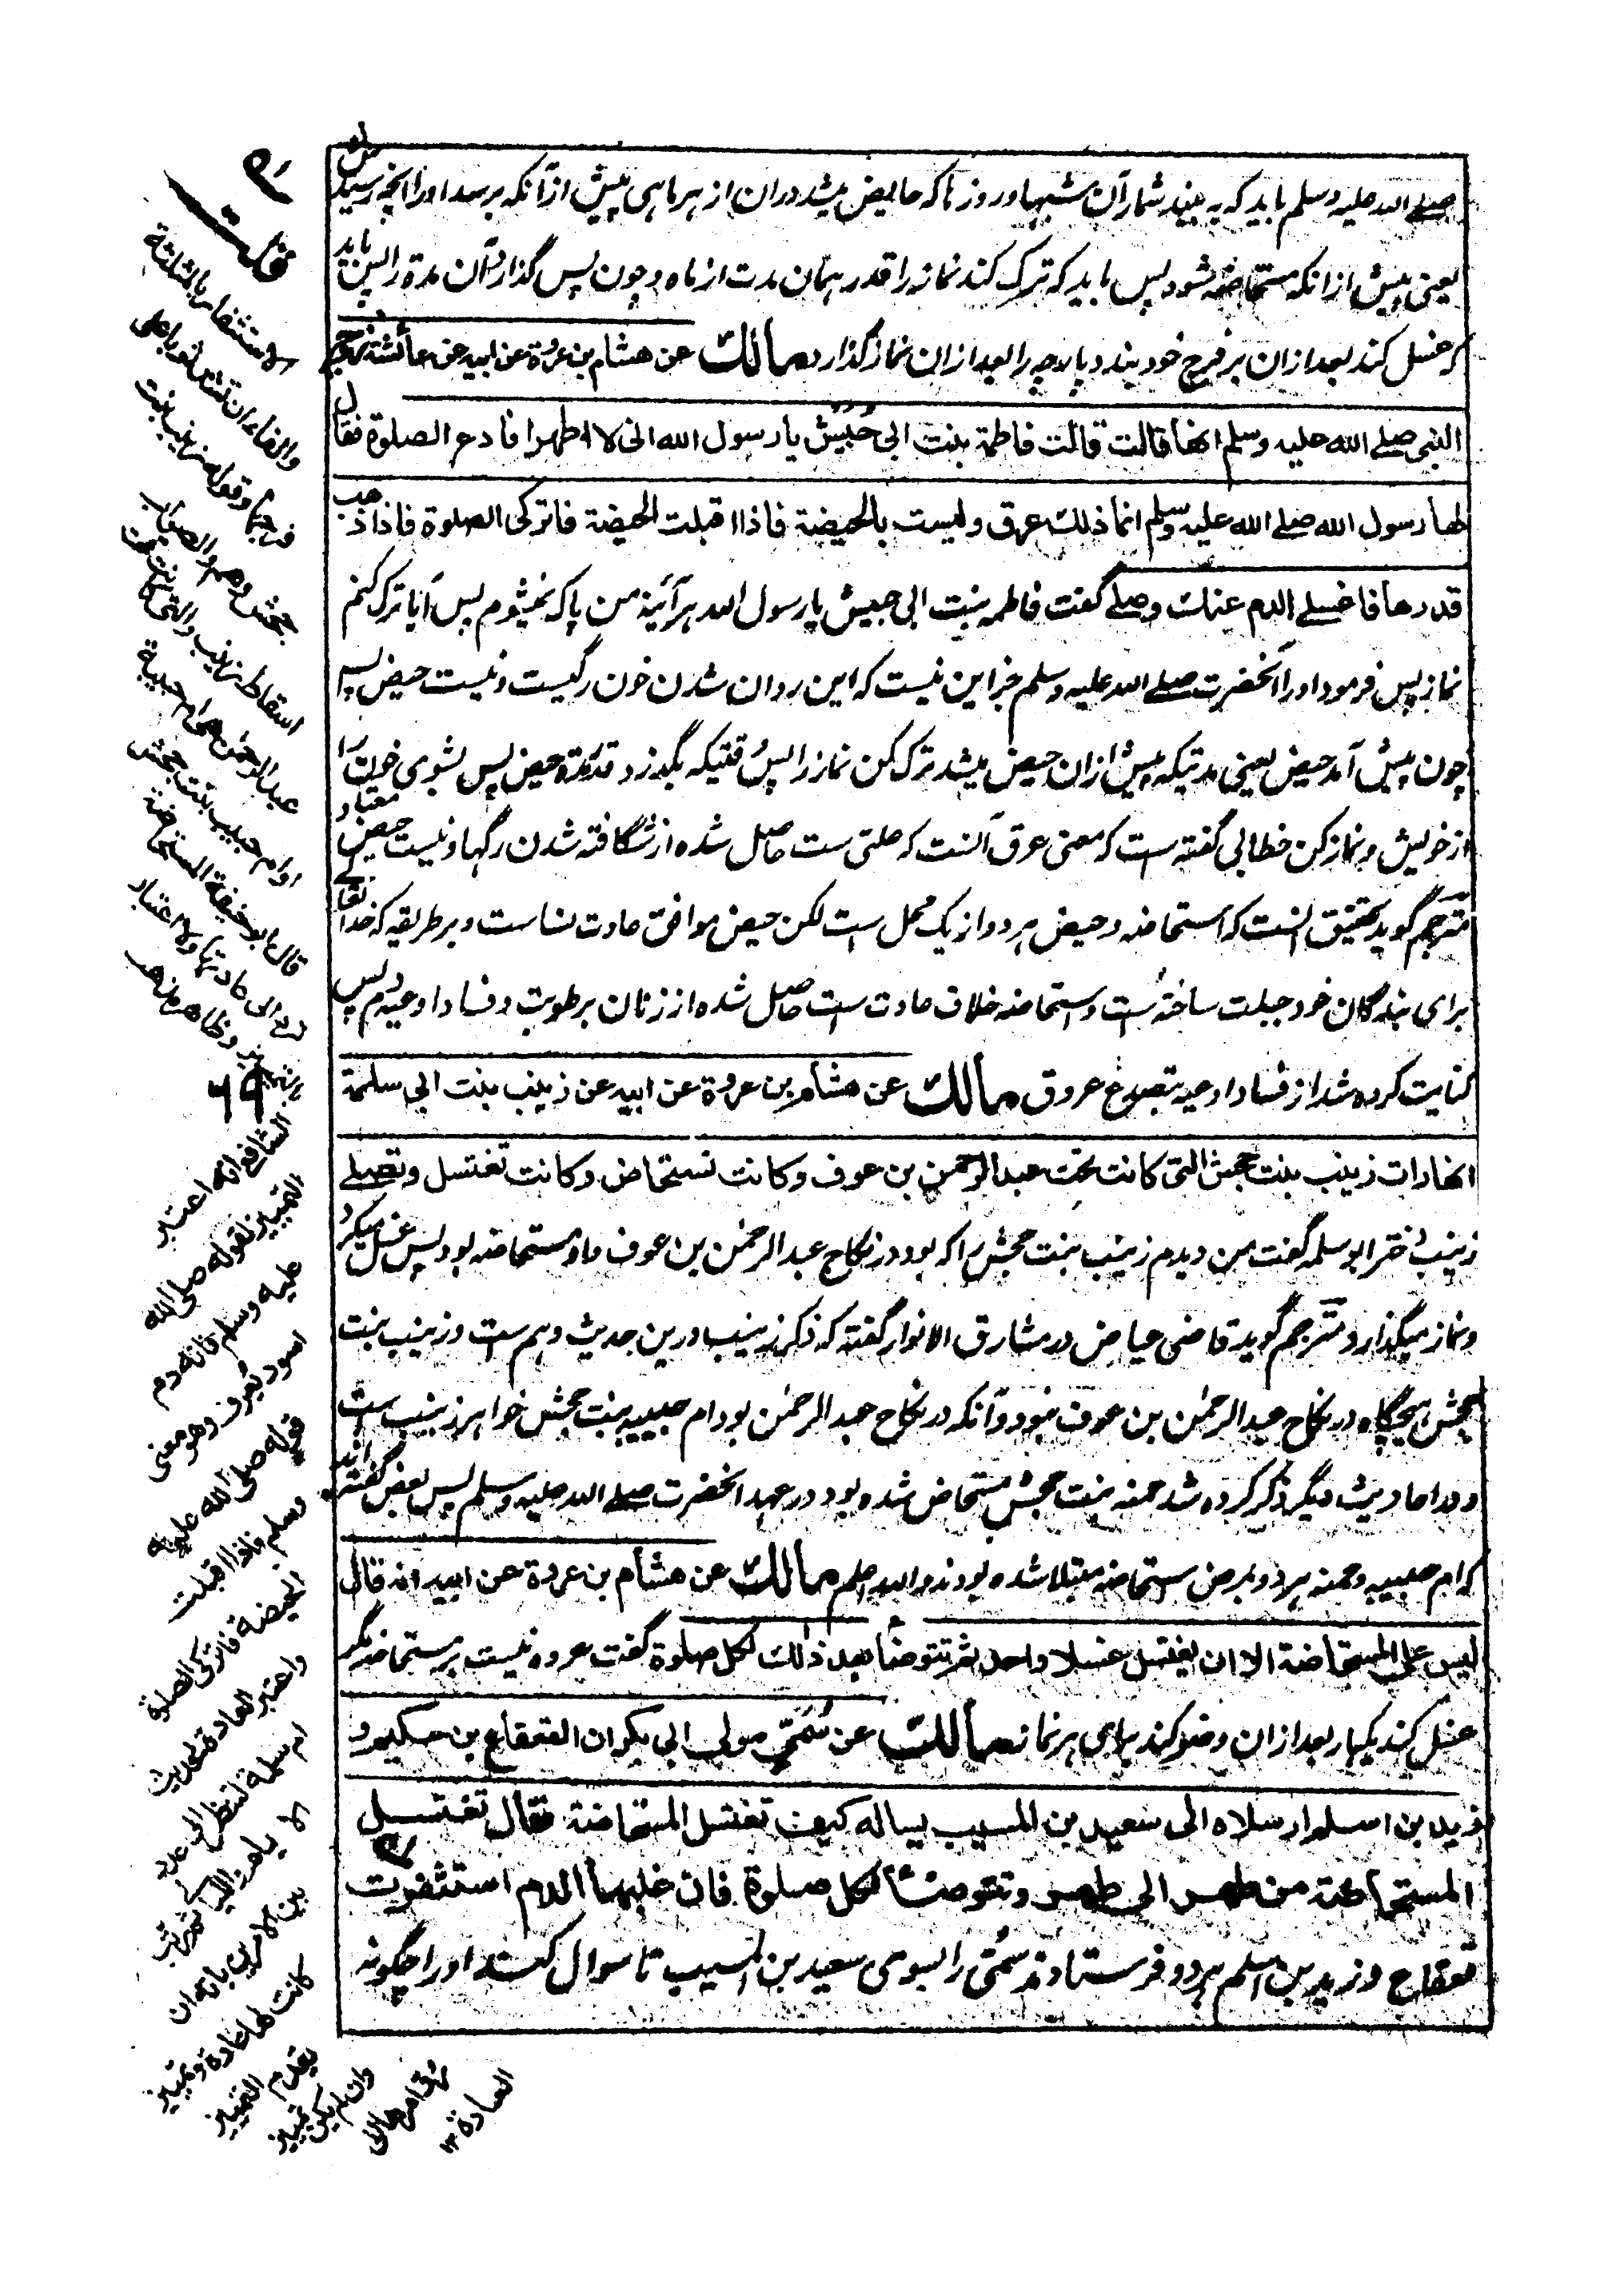 صلے الله علیه وسلم باید که به بیند شمار آن شبها و روزها که حایض میشد دران از هر ماهی پیش ازانکه برسد او را آنچه رسید
یعنی پیش ازانکه مستحاضه شود پس باید که ترک کند نماز را قدر همان مدت از ماه و چون پس گذارد آن مدة را پس باید
که غسل کند بعد ازان بر فرج خود بندد پارچه را بعد ازان نماز گذارد مالك عن هشام بن عروة عن ابیه عن عائشة زوج
النبی صلے الله علیه وسلم انها قالت قالت فاطمة بنت ابی حبیش یا رسول الله انی لا اطهر افادع الصلوة فقال
لها رسول الله صلے الله علیه وسلم انما ذلك عرق ولیست بالحیضة فاذا اقبلت الحیضة فاترکی الصلوة فاذا ذهب
قدرها فاغسلے الدم عنك وصلے گفت فاطمه بنت ابی حبیش یا رسول الله هر آئینه من پاک نمیشوم پس آیا ترک کنم
نماز پس فرمود او را آنحضرت صلے الله علیه وسلم جز این نیست که این روان شدن خون رگیست و نیست حیض پس
چون پیش آمد حیض یعنی مدتیکه پیش ازان حیض میشد ترک کن نماز را پس وقتیکه بگذرد قدر مدة حیض پس بشوی خون را
از خویش و نماز کن خطابی گفته است که معنی عرق آنست که علتی ست حاصل شده از شگافته شدن رگها و نیست حیض معتاد
مترجم گوید تحقیق آنست که استحاضه و حیض هر دو از یک محل ست لکن حیض موافق عادت نساست و بر طریقه که خدا تعالی
برای بندگان خود جبلت ساخته است و استحاضه خلاف عادت ست حاصل شده از زنان برطوبت و فساد اوعیه دم پس
کنایت کرده شد از فساد اوعیه بتصدع عروق مالك عن هشام بن عروة عن ابیه عن زینب بنت ابی سلمة
انها رات زینب بنت جحش التی کانت تحت عبد الرحمن بن عوف وکانت تستحاض وکانت تغتسل وتصلے
زینب دختر ابو سلمه گفت من دیدم زینب بنت جحش را که بود در نکاح عبد الرحمن بن عوف و او مستحاضه بود پس غسل میکرد
و نماز میگذارد مترجم گوید قاضی عیاض در مشارق الانوار گفته که ذکر زینب درین حدیث وهم ست و زینب بنت
جحش هیچگاه در نکاح عبد الرحمن بن عوف نبود و آنکه در نکاح عبد الرحمن بود ام حبیبه بنت جحش خواهر زینب ست
و در احادیث دیگر ذکر کرده شد حمنه بنت جحش مستحاض شده بود در عهد آنحضرت صلے الله علیه وسلم پس بعض گفته اند
که ام حبیبه و حمنه هر دو بمرض استحاضه مبتلا شده بودند والله اعلم مالك عن هشام بن عروة عن ابیه انه قال
لیس علی المستحاضة الا ان تغتسل غسلا واحدا ثم تتوضأ بعد ذلك لکل صلوة گفت عروه نیست بر مستحاضه مگر
غسل کند یکبار بعد ازان وضو کند برای هر نماز مالك عن سُمَیّ مولی ابی بکر ان القعقاع بن حکیم و
زید بن اسلم ارسلاه الی سعید بن المسیب یساله کیف تغتسل المستحاضة فقال تغتسل
المستحاضة من طهر الی طهر وتتوضأ لکل صلوة فان غلبها الدم استثفرت
قعقاع و زید بن اسلم هر دو فرستادند سُمّی را بسوی سعید بن المسیب تا سوال کند او را چگونه
قلت
الاستثفار بالمثلثة
والفاء ان تشد ثوبا علی
فرجها وقوله زینب بنت
جحش وهم والصواب
اسقاط زینب والتی کانت تحت
عبد الرحمن هی ام حبیبة
او ام حبیب بنت جحش
قال ابو حنیفة المستحاضة
ترد الی عادتها ولا اعتبار
بتمییز وظاهر مذهب
۶۹
الشافعی انه اعتبر
التمییز لقوله صلی الله
علیه وسلم فانه دم
اسود یعرف وهو معنی
قوله صلی الله علیه
وسلم فاذا اقبلت
الحیضة فاترکی الصلوة
واعتبر العادة لحدیث
ام سلمة لتنظر الی عدد
بین الامرین بانه ان
کانت لها عادة وتمییز
یقدم التمییز
وان لم یکن تمییز
ترد الی
العادة ۱۲